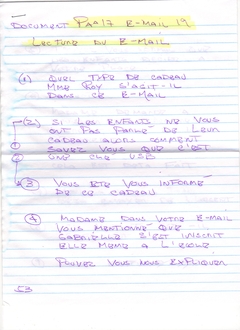 DOCUMENT PAA17 E-MAIL 19
LECTURE DU E-MAIL
1 QUEL TYPE DE CADEAU
MME ROY S'AGIT-IL
DANS CE E-MAIL
2 SI LES ENFANTS NE VOUS
ONT PAS PARLÉ DE LEUR
CADEAU ALORS COMMENT
SAVEZ VOUS QUE C'EST
UNE CLÉ USB
3 VOUS ETE VOUS INFORMÉ
DE CE CADEAU
4 MADAME DANS VOTRE E-MAIL
VOUS MENTIONNE QUE
GABRIELLE S'EST INSCRIT
ELLE MEME A L'ECOLE
POUVEZ VOUS NOUS EXPLIQUER
53